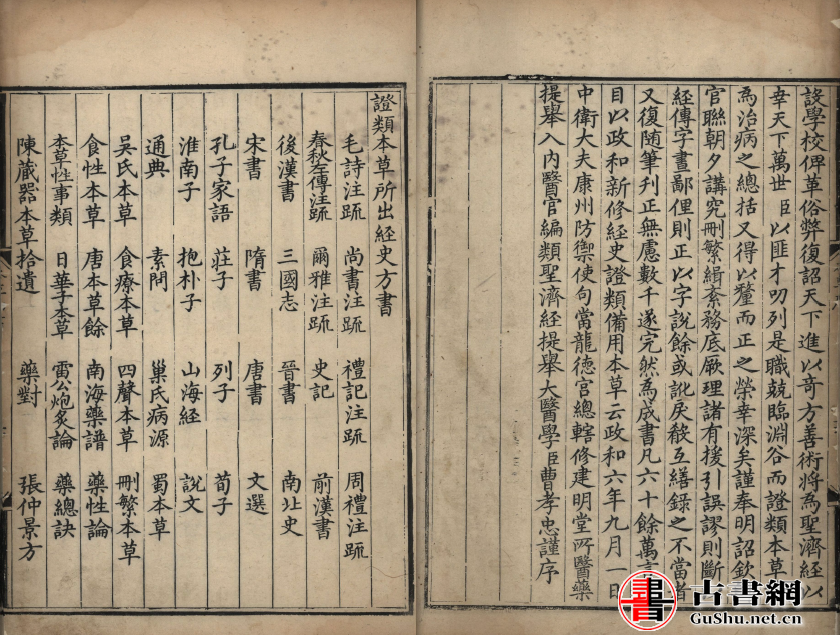 設學校俾革俗弊復詔天下進以竒方善術將為聖濟經以
幸天下萬世臣以匪才叨列是職兢臨淵谷而證類本草
為治病之總括又得以釐而正之榮幸深矣謹奉明詔欽
官聯朝夕講究刪繁緝紊務底厥理諸有援引誤謬則斷
經傳字畫鄙俚則正以字說餘或訛戾殽互繕錄之不當者
又復隨筆刊正無慮數千遂完然為成書凡六十餘萬言
目以政和新修經史證類備用本草云政和六年九月一日
中衛大夫康州防禦使句當龍德宮總轄修建明堂所醫藥
提舉入內醫官編類聖濟經提舉大醫學臣曹孝忠謹序
證類本草所出經史方書
毛詩注疏 尚書注疏 禮記注疏 周禮注疏
春秋左傳注疏 爾雅注疏 史記 前漢書
後漢書 三國志 晉書 南北史
宋書 隋書 唐書 文選
孔子家語 莊子 列子 荀子
淮南子 抱朴子 山海經 說文
通典 素問 巢氏病源 蜀本草
吳氏本草 食療本草 四聲本草 刪繁本草
食性本草 唐本草餘 南海藥譜 藥性論
本草性事類 日華子本草 雷公炮炙論 藥總訣
陳藏器本草拾遺 藥對 張仲景方
書
古書網
GuShu.net.cn